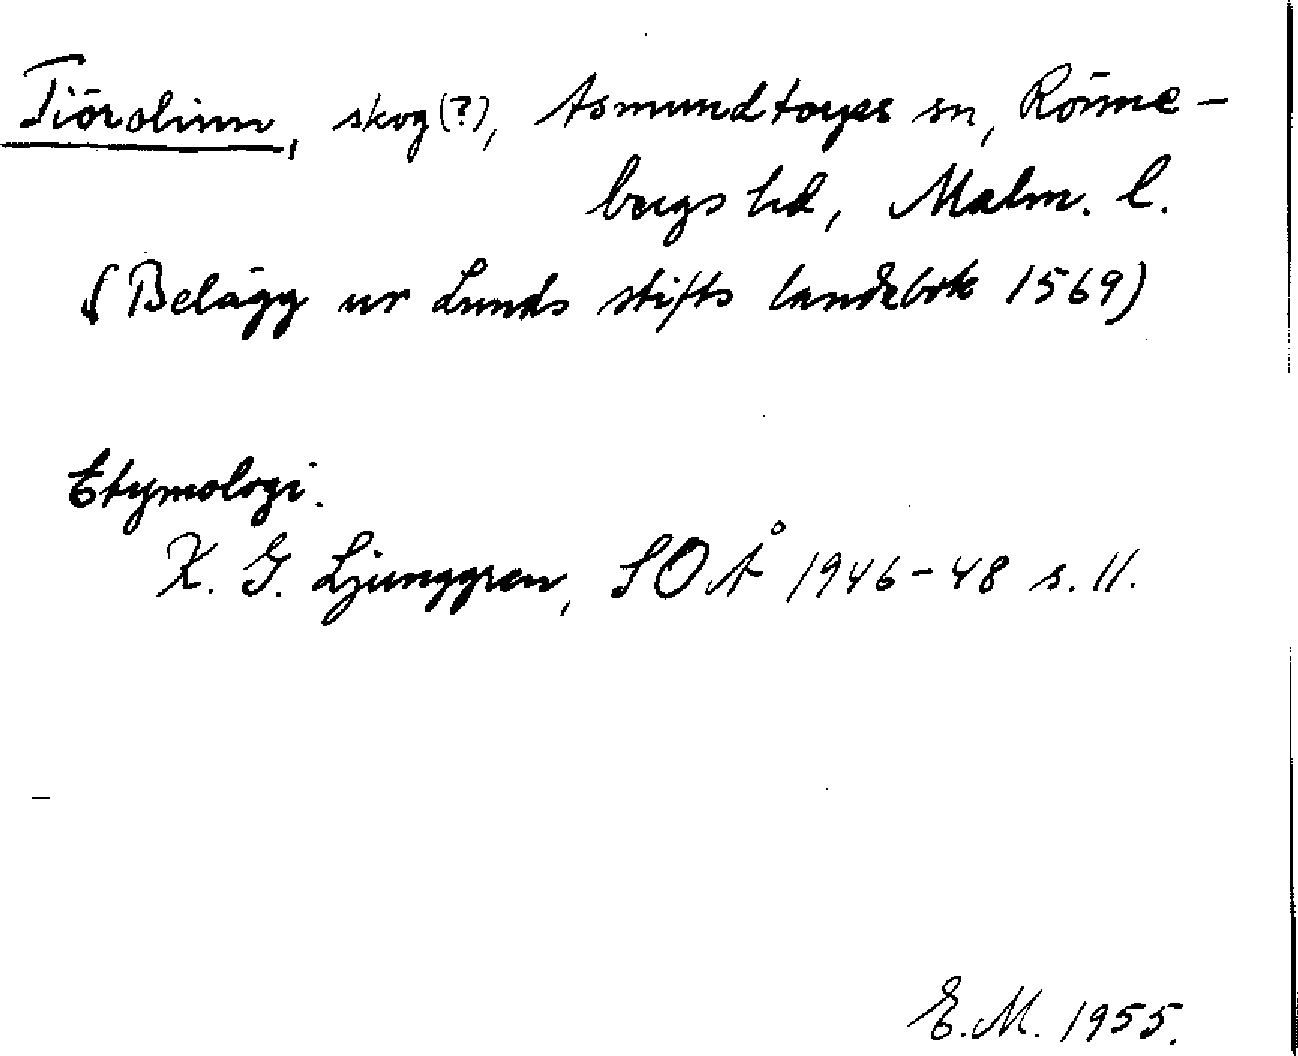 Tiörolinn, skog (?), Asmundtorps sn, Rönne-
bergs hd, Malm. l.
(Belägg ur Lunds stifts landebok 1569)
Etymologi.
K. G. Ljunggren, SOÅ 1946-48 s. 11.
E. M. 1955.